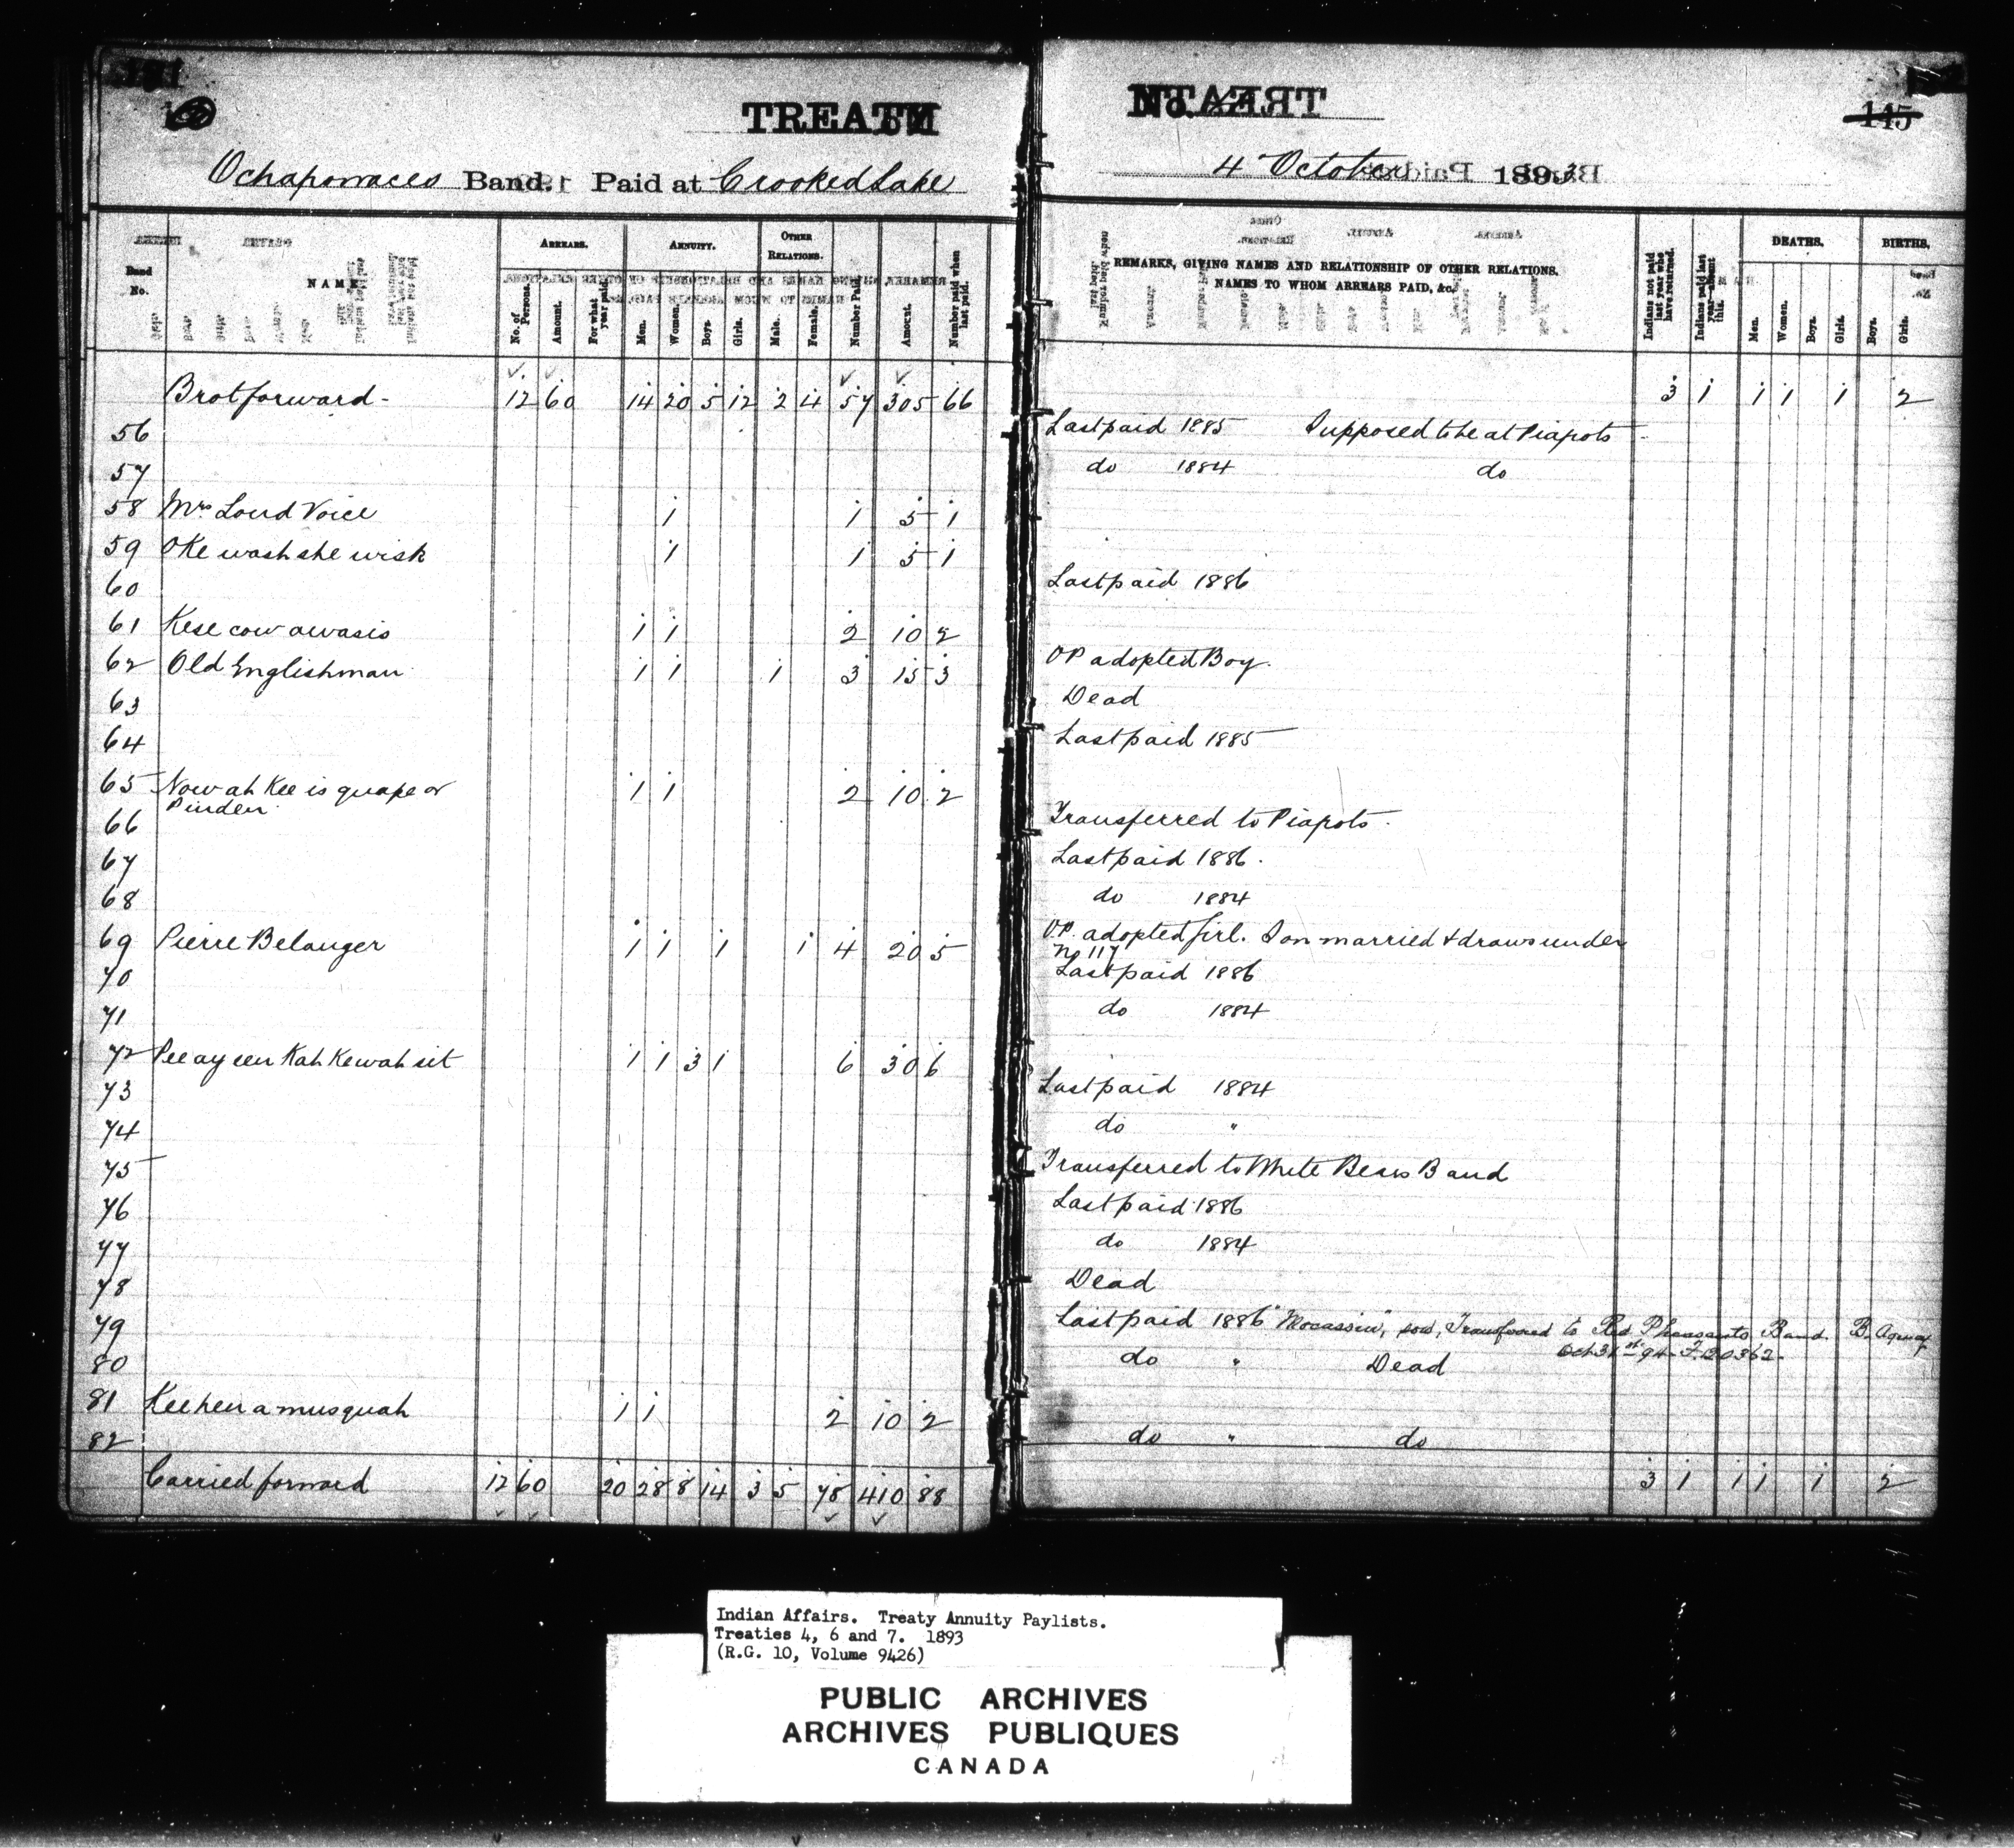 TREATY No. 4
145
Ochapowaces Band. Paid at Crooked Lake 4 October 1893
Band No.
NAME
ARREARS.
No. of Persons.
Amount.
For what year paid.
ANNUITY.
Men.
Women.
Boys.
Girls.
OTHER RELATIONS.
Male.
Female.
Number Paid.
Amount.
Number paid when last paid.
REMARKS, GIVING NAMES AND RELATIONSHIP OF OTHER RELATIONS.
NAMES TO WHOM ARREARS PAID, &c.
Indians not paid last year who have returned.
Indians paid last year absent this.
DEATHS.
Men.
Women.
Boys.
Girls.
BIRTHS.
Boys.
Girls.
Brot forward - 12 60 14 20 5 12 2 4 57 305 66 3 1 1 1 1 2
56 Last paid 1885 Supposed to be at Piapots -
57 do 1884 do
58 Mrs Loud Voice 1 1 5 1
59 Oke wash she wisk 1 1 5 1
60 Last paid 1886
61 Kese cow awasis 1 1 2 10 2
62 Old Englishman 1 1 1 3 15 3 OP adopted Boy.
63 Dead
64 Last paid 1885
65 Now ah Kee is quape or 1 1 2 10 2
Pinden
66 Transferred to Piapots.
67 Last paid 1886.
68 do 1884
69 Pierre Belanger 1 1 1 1 4 20 5 OP. adopted girl. Son married & draws under
No 117
70 Last paid 1886
71 do 1884
72 Pee ay seen Kah Kewah sit 1 1 3 1 6 30 6
73 Last paid 1884
74 do "
75 Transferred to White Bears Band
76 Last paid 1886
77 do 1884
78 Dead
79 Last paid 1886 "Mocassin", son, Transferred to Red Pheasants Band. B. Agency
Oct 31st 94
80 do " Dead
81 Kee hew a musquah 1 1 2 10 2
82 do " do
Carried forward 12 60 20 28 8 14 3 5 78 410 88 3 1 1 1 1 2
Indian Affairs. Treaty Annuity Paylists.
Treaties 4, 6 and 7. 1893
(R.G. 10, Volume 9426)
PUBLIC ARCHIVES
ARCHIVES PUBLIQUES
CANADA